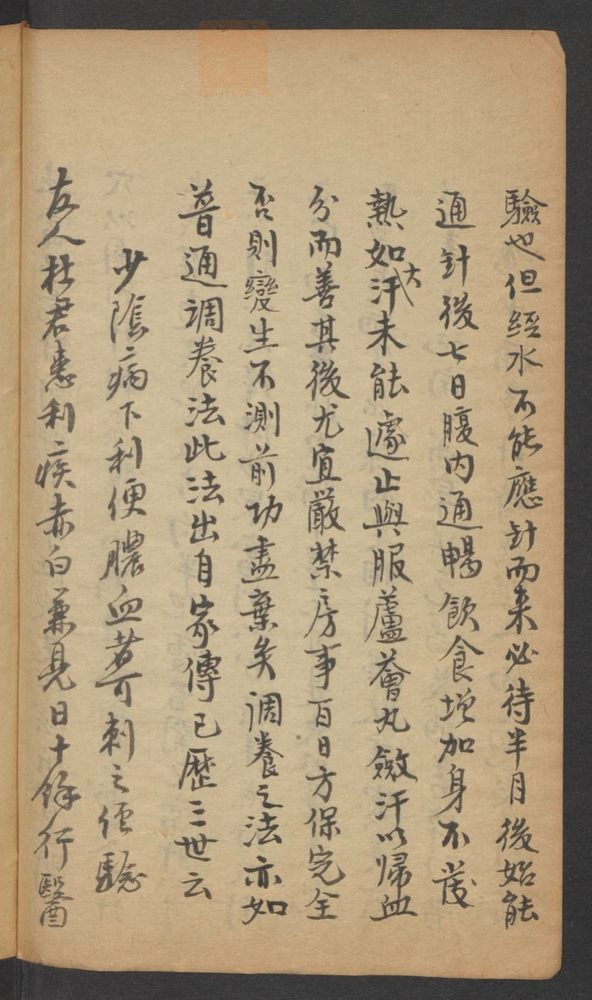 驗也但經水不能應針而来必待半月後始能
通針後七日腹内通暢飲食增加身不發
熱如大汗未能遽止與服蘆薈丸斂汗以歸血
分而善其後尤宜嚴禁房事百日方保完全
否則變生不測前功盡棄矣調養之法亦如
普通調養法此法出自家傳已歷三世云
少陰病下利便膿血者可刺之經驗
友人杜君患利疾赤白兼見日十餘行醫